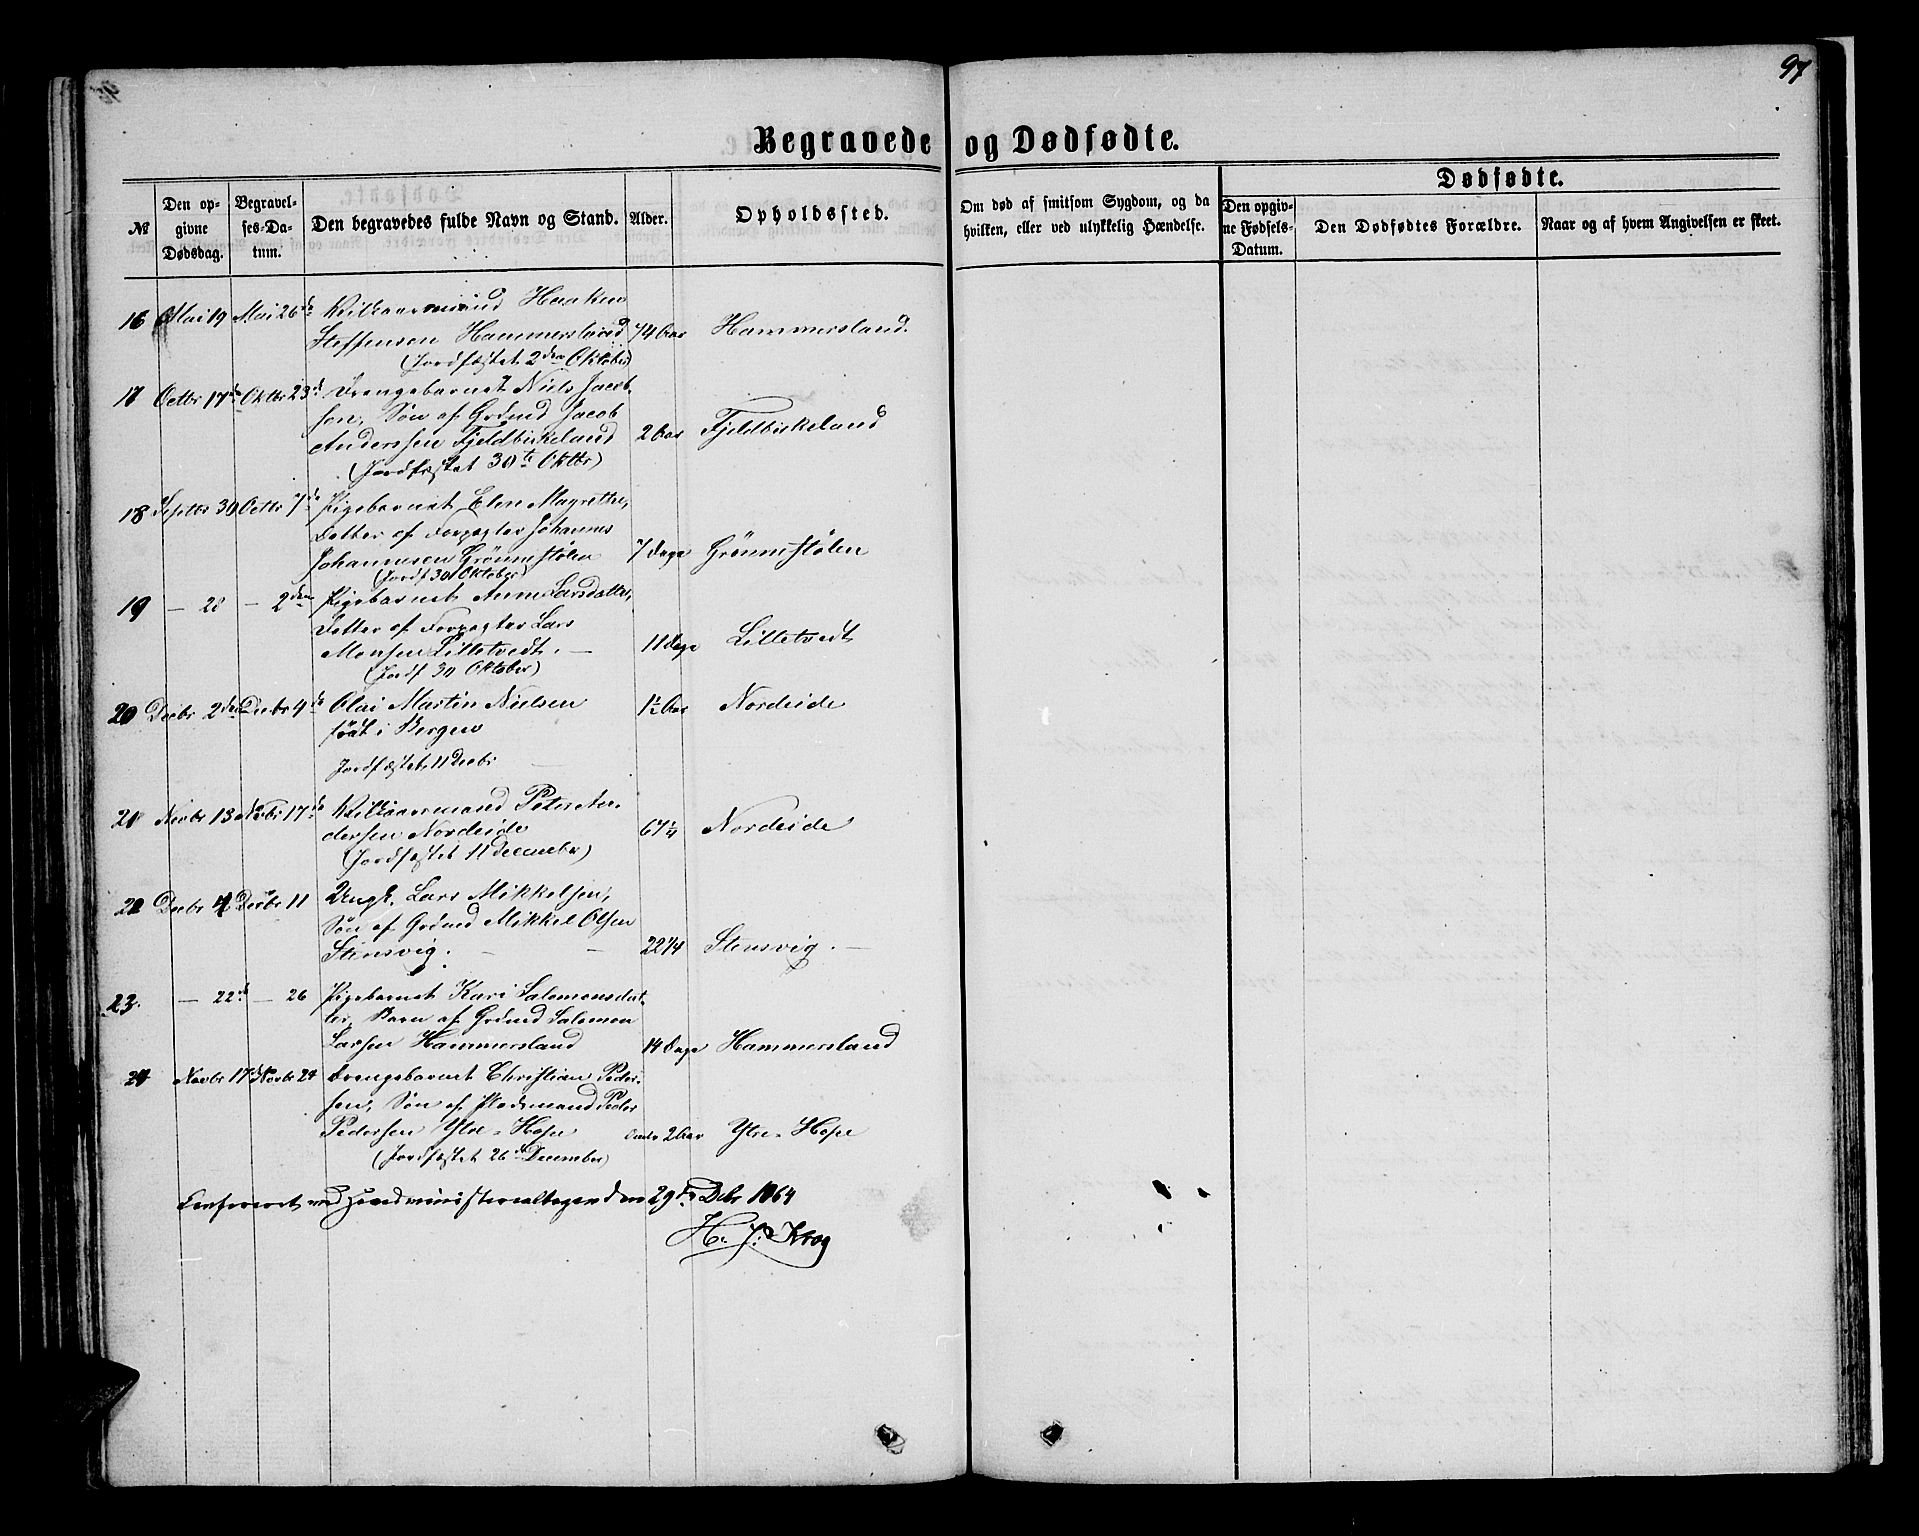 97
Begravede og Dødfødte.
№
Den opgivne Dødsdag.
Begravelses-Datum.
Den begravedes fulde Navn og Stand.
Alder.
Opholdssted.
Om død af smitsom Sygdom, og da hvilken, eller ved ulykkelig Hændelse.
Dødfødte.
Den opgivne Fødsels-Datum.
Den Dødfødtes Forældre.
Naar og af hvem Angivelsen er skeet.
16 Mai 19 Mai 26de Vilkaarmand Haaken
Steffensen Hammersland 74 Aar Hammersland.
(Jordfæstet 2den Oktober)
17 Octbr 17de Oktbr 23de Drengebarnet Niels Jacob-
sen, Søn af Grdmd Jacob
Anderssen Fjeldbirkeland 2 Aar Fjeldbirkeland
(Jordfæstet 30te Oktbr)
18 Septbr 30 Octbr 7de Pigebarnet Elen Magrethe,
Datter af Forpagter Johannes
Johannesen Grönnestølen 7 Dage Grönnestølen
(Jordf 30 Oktober)
19 — 28 — 2den Pigebarnet Anne Larsdatter,
Datter af Forpagter Lars
Monsen Lilletvedt. — 11 Dage Lilletvedt
(Jordf 30 Oktober)
20 Decbr 2den Decbr 4de Olai Martin Nielsen 1½ Aar Nordeide
født i Bergen
Jordfæstet 11 Decbr
21 Novbr 13 Novbr 17de Vilkaarmand Peter An-
dersen Nordeide 67¼ Nordeide
(Jordfæstet 11 December)
22 Decbr 4 Decbr 11 Ungk. Lars Mikkelsen,
Søn af Grdmd Mikkel Olsen
Stensvig. — 22¼ Stensvig. —
23. — 22de — 26 Pigebarnet Kari Salomonsdat-
ter, Barn af Grdmd Salomon
Larsen Hammersland 14 Dage Hammersland
24 Novbr 17de Novbr 24 Drengebarnet Christian Peder-
sen, Søn af Pladsmand Peder
Pedersen Ytre-Hope 2 Aar Ytre-Hope
(Jordfæstet 26de December)
Conferert med Hovedministerialbogen den 29de Debr 1864
H. J. Krog